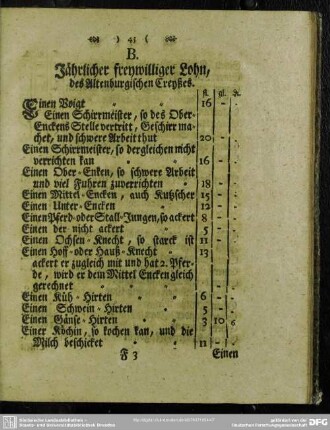 ) 41 (
B.
Jährlicher freywilliger Lohn,
des Altenburgischen Creyßes.
fl. gl.
Einen Voigt " " 16 - -
Einen Schirrmeister, so des Ober-
Enckens Stelle vertritt, Geschirr ma-
chet, und schwere Arbeit thut 20 - -
Einen Schirrmeister, so dergleichen nicht
verrichten kan " " 16 - -
Einen Ober-Encken, so schwere Arbeit
und viel Fuhren zuverrichten " 18 - -
Einen Mittel-Encken, auch Kutzscher 15 - -
Einen Unter-Encken " " 12 - -
Einen Pferd- oder Stall-Jungen, so ackert 8 - -
Einen der nicht ackert " 5 - -
Einen Ochsen-Knecht, so starck ist 11 - -
Einen Hoff- oder Hauß-Knecht " 13 - -
ackert er zugleich mit und hat 2. Pfer-
de, wird er dem Mittel Encken gleich
gerechnet " "
Einen Küh-Hirten " " 6 - -
Einen Schwein-Hirten " 5 - -
Einen Gänse-Hirten " " 3 10 6
Einer Köchin, so kochen kan, und die
Milch beschicket " " 11 - -
F 3 Einen
Sächsische Landesbibliothek -
Staats- und Universitätsbibliothek Dresden
gefördert von der
Deutschen Forschungsgemeinschaft